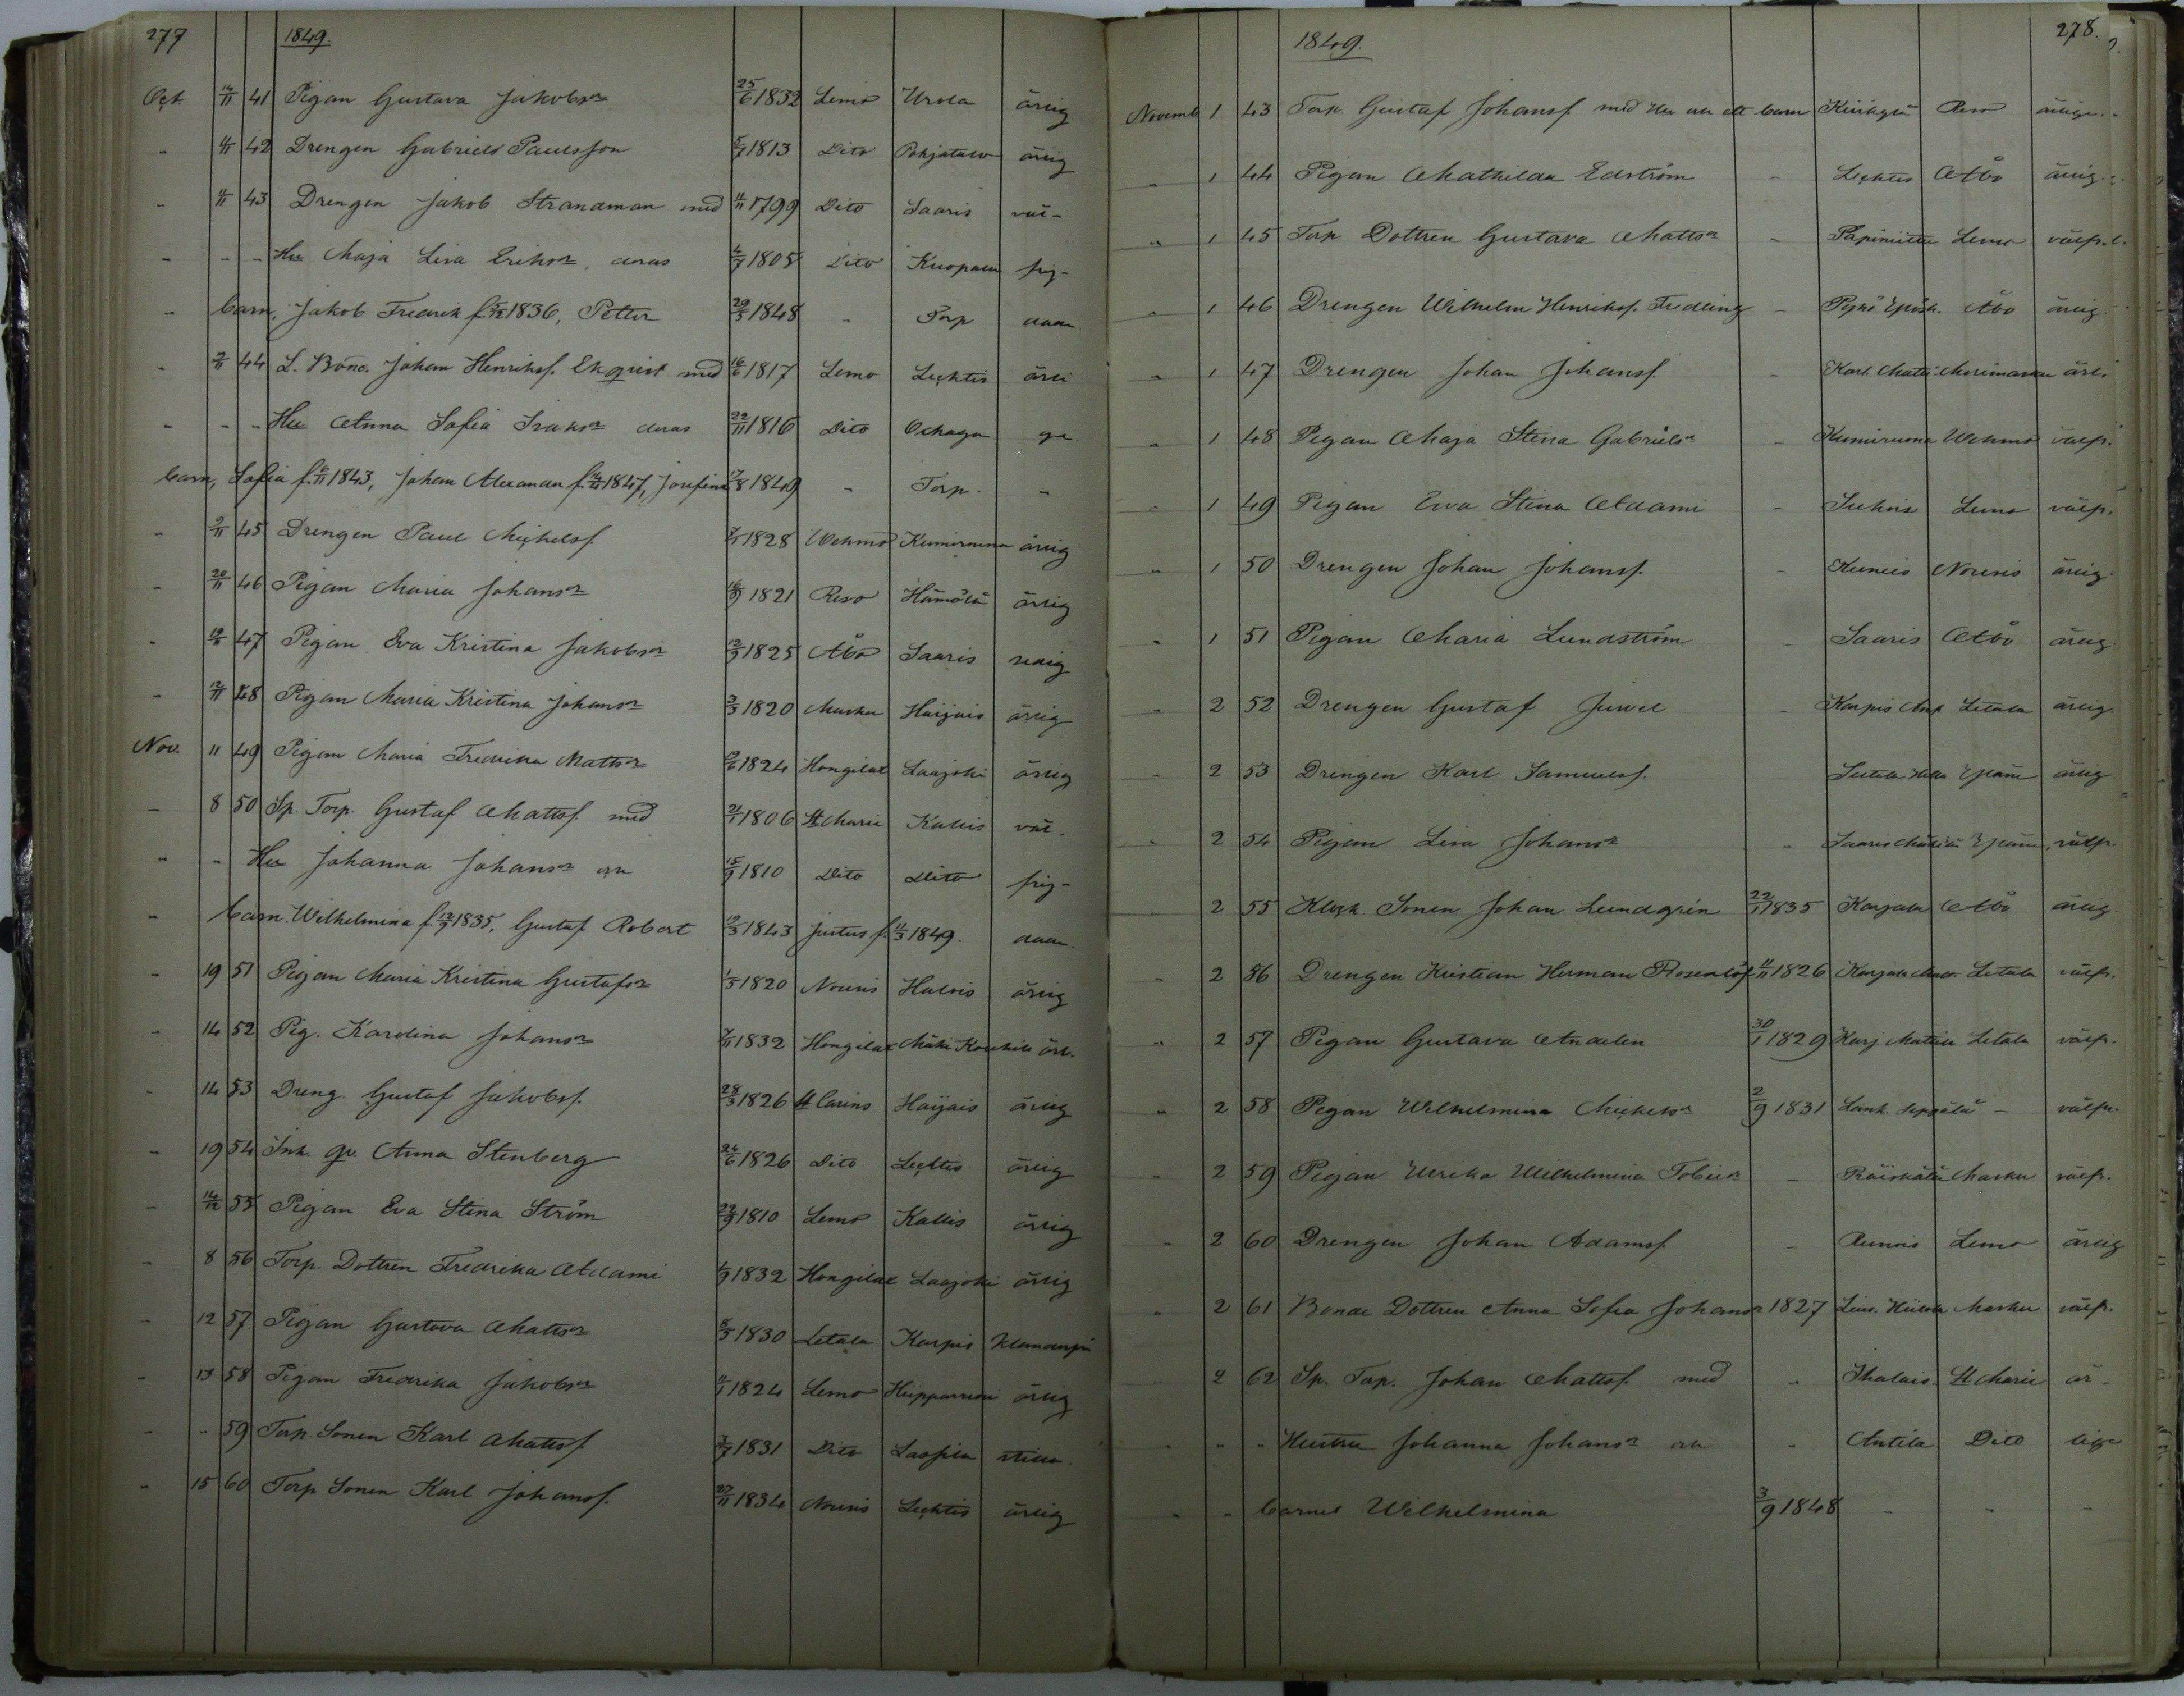 277 1849.
Oct. 14/11 41 Pigan Gustava Jakobsr 25/6 1832 Lemo Urola ärlig
" 4/11 42 Drengen Gabriels Paulsson 5/7 1813 Dito Pohjatalo ärlig
" 11/11 43 Drengen Jakob Strandman med 11/11 1799 Dito Saaris väl-
" - - Hu Maja Lisa Eriksr, deras 4/7 1805 Dito Kuopaen frej-
" barn, Jakob Fredrik 1836, Petter 29/5 1848 " Torp dade.
- 9/11 44 L. Bond. Johan Henriksf. Ekqvist med 16/6 1817 Lemo Lechtis ärli
- - - Hu Anna Sofia Isaksr deras 22/11 1816 Dito Ochaga ga.
barn, Sofia 1843, Johan Alexander 1847, Josefina 17/8 1849 " Torp. "
- 9/11 45 Drengen Paul Michelsf. 1828 Wehmo ärlig
- 20/11 46 Pigan Maria Johansr 16/9 1821 Reso Hämölä ärlig
- 47 Pigan Eva Kristina Jakobsr 1825 Åbo Saaris
- 12/11 48 Pigan Maria Kristina Johansr 3/3 1820 Masku Haijais ärlig
Nov. 11 49 Pigan Maria Fredrika Mattsr 1824 Hongilax Laajoki ärlig
- 8 50 Sp. Torp. Gustaf Mattsf. med 21/1 1806 St Marie Kallis väl-
" " Hu Johanna Johansr 15/9 1810 Dito Dito frej-
" barn. Wilhelmina 1835, Gustaf Robert 1843 Justus f. 11/3 1849. dade.
- 19 51 Pigan Maria Kristina Gustafsr 1/5 1820 Nousis Halois ärlig
- 14 52 Pig. Karolina Johansr 7/11 1832 Hongilax Mäki ärl.
- 14 53 Dreng. Gustaf Jakobsf. 28/3 1826 St Carins Haijais ärlig
- 19 54 Inh. qv. Anna Stenberg 24/6 1826 Dito Lechtis ärlig
- 14/12 55 Pigan Eva Stina Ström 22/9 1810 Lemo Kallis ärlig
- 8 56 Torp. Dottren Fredrika Adami 1/9 1832 Hongilax Laajoki ärlig
- 12 57 Pigan Gustava Mattsr 8/5 1830 Letala Karpis
- 13 58 Pigan Fredrika Jakobsr 1824 Lemo ärlig
- " 59 Torp. Sonen Karl Mattsf. 3/7 1831 Dito Laspila stilla.
- 15 60 Torp Sonen Karl Johansf. 27/11 1834 Nousis Lechtis ärlig
1849. 278.
Novemb 1 43 Torp. Gustaf Johansf. med Hu ett barn Reso ärliga.
" 1 44 Pigan Mathilda Edström - Lechtis Åbo ärlig.
" 1 45 Torp. Dottren Gustava Mattsr - Papiniittu Lemo välfr.
" 1 46 Drengen Wilhelm Henriksf. Fredling - Åbo ärlig
" 1 47 Drengen Johan Johansf. - Karl. Matti ärl.
" 1 48 Pigan Maja Stina Gabrielsr - Wehmo välfr.
" 1 49 Pigan Eva Stina Adami - Lemo välfr.
" 1 50 Drengen Johan Johansf. - Nousis ärlig
" 1 51 Pigan Maria Lundström - Saaris Åbo ärlig
" 2 52 Drengen Gustaf Juwel - Karpis Letala ärlig
" 2 53 Drengen Karl Samuelsf. ärlig
" 2 54 Pigan Lisa Johansr " Saaris välfr.
" 2 55 Sonen Johan Lundgrén 22/11 1835 Karjala Åbo ärlig
" 2 56 Drengen Kristian Herman Rosenlöf 11/11 1826 Karjala Letala välfr.
" 2 57 Pigan Gustava Andelin 30/1 1829 Karj. Letala välfr.
" 2 58 Pigan Wilhelmina Michelsr 2/9 1831 Lank. Seppälä - välfr.
" 2 59 Pigan Ulrika Wilhelmina Tobiisr - Räiskälä Masku välfr.
" 2 60 Drengen Johan Adamsf. - Runois Lemo ärlig
" 2 61 Bonde Dottren Anna Sofia Johansr 1827 Masku välfr.
" 2 62 Sp. Torp. Johan Mattsf. med " Ihalais St Marie är-
" " " Hustru Johanna Johansr " Antila Dito liga
" " barnet Wilhelmina 3/9 1848 - - -